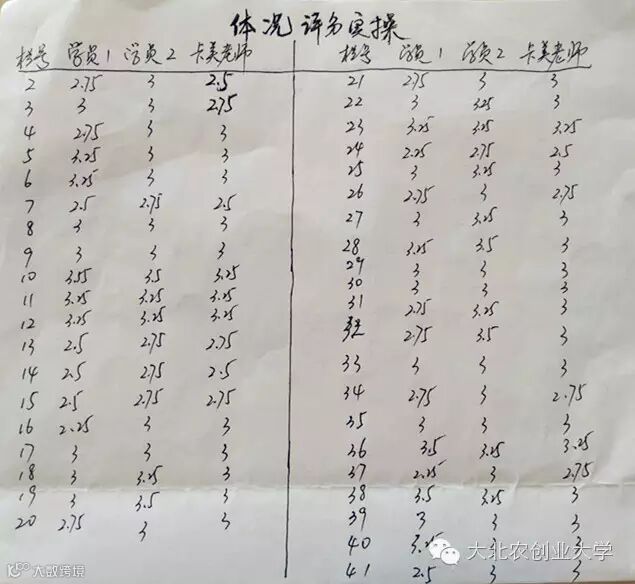 体况评分实操
栏号 学员1 学员2 卡美老师
2 2.75 3 2.5
3 3 3 2.75
4 2.75 3 3
5 3.25 3 3
6 3.25 3 3
7 2.5 2.75 2.5
8 3 3 3
9 3 3 3
10 3.55 3.5 3.25
11 3.25 3.25 3.25
12 3.25 3.25 3.25
13 2.5 2.75 2.75
14 2.5 2.75 2.5
15 2.5 2.75 2.75
16 2.25 3 3
17 3 3 3
18 3 3.25 3
19 3 3.5 3
20 2.75 3 3
栏号 学员1 学员2 卡美老师
21 2.75 3 3
22 3 3.25 3
23 3.25 3.25 3.25
24 2.25 2.75 2.5
25 3 3.25 3
26 2.75 3 2.75
27 3 3.25 3
28 3.25 3.5 3
29 3 3 3
30 3 3 3
31 2.75 3.25 3
2.75 3.5 3
33 3 3 3
34 2.75 3 2.75
35 3 3 3
36 3.5 3.25 3.25
37 2.25 3 2.75
38 3.5 3.25 3
39 3 3 3
40 3.25 3
41 2.5 3 3
大北农创业大学
大数跨境